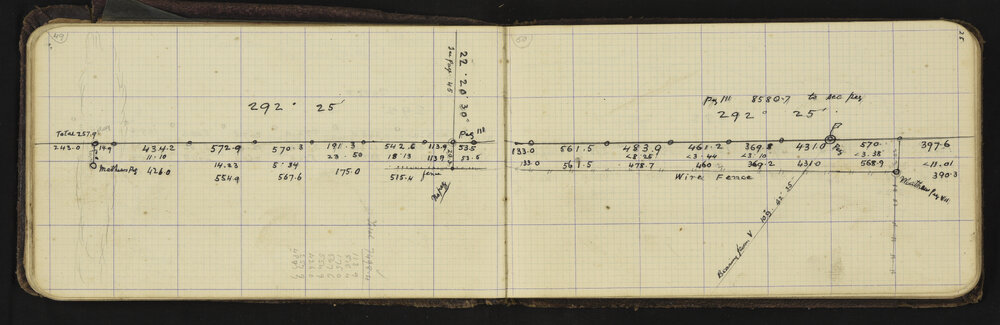 49
22° 20' 30"
See page 45
292° 25'
Total 257.9
Peg III
243.0 14.9 434.2 572.9 570.3 191.3 542.6 113.9 53.5
11.10 14.23 5.34 23.50 18.13 113.9 53.5
Mathews Peg 426.0 554.9 567.6 175.0 515.4 fence
No peg
50
25
Peg III 8580.7 to sec peg
292° 25'
P
133.0 561.5 483.9 461.2 369.8 431.0 Peg 570 397.6
133.0 561.5 <8.25 <3.44 <3.10 431.0 <3.38 <11.01
478.7 460 369.2 568.9 390.3
Wire Fence
Matthews peg VIII
Bearing from V 109° 42' 25"